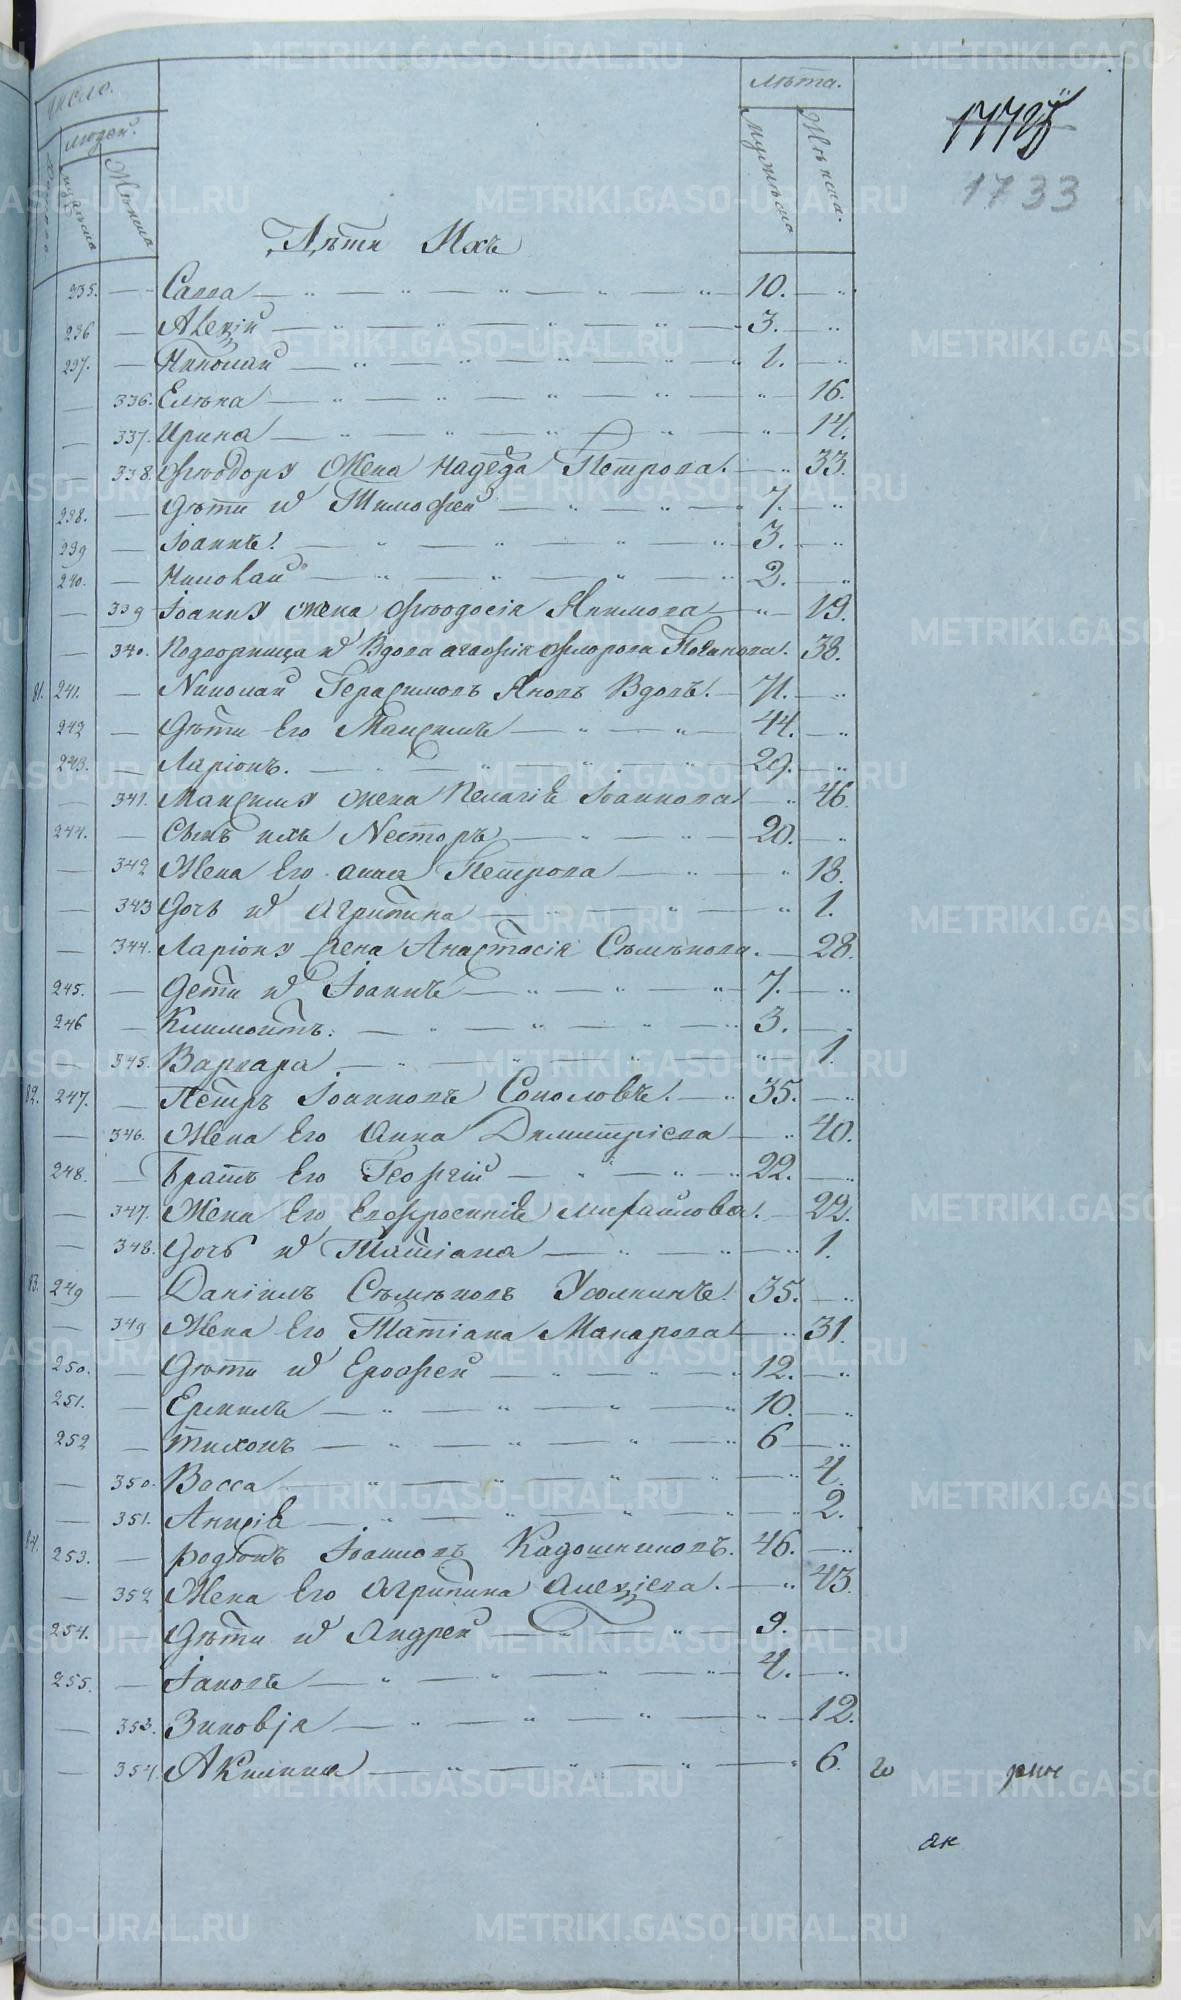 число.
людей.
мужеска
женска
лѣта.
мужеска
женска.
1733
Дѣти Ихъ
235. — Савва — 10. —
236 — Алеѯій — 3. —
237. — Николай — 1. —
— 336. Елѣна — 16.
— 337. Ирина — 14.
— 338. Ѳеодору Жена Надежда Петрова. — 33.
238. — Дѣти и҃ Тимоѳей — 7. —
239 — Іоаннъ. — 3. —
240. — Николай — 2. —
— 339 Іоанну жена Ѳеодосія Якимова — 19.
— 340. Подворница и҃ Вдова Флорова 38.
81. 241. — Николай Герасимовъ Яковъ Вдовъ. — 71. —
242 — Дѣти Его Маѯимъ — 44. —
243. — Ларіонъ. — 29. —
— 341. Маѯиму жена Пелагія Іоаннова — 46.
244. — Сынъ ихъ Несторъ — 20. —
— 342 Жена Его Анна Петрова — 18.
— 343 Дочь и҃ Агрипина — 1.
— 344. Ларіону Жена Анастасія Сѣмѣнова. — 28.
245. — Дети и҃ Іоаннъ — 7. —
246 — Климонтъ. — 3. —
— 345. Варвара. — 1.
82. 247. — Петръ Іоанновъ Соколовъ. — 35. —
— 346. Жена Его Анна Димитріева — 40.
248. — Братъ Его Георгій — 22. —
— 347. Жена Его Евфросинія Михайлова. — 22.
— 348. Дочь и҃ Татіана — 1.
83. 249 — Даніилъ Сѣмѣновъ Усолкинъ. 35. —
— 349 Жена Его Татіана Макарова — 31.
250. — Дѣти и҃ Ерофей — 12. —
251. — Ермилъ — 10. —
252 — Тихонъ — 6 —
— 350. Васса — 4.
— 351. Анисія — 2.
84. 253. — Родіонъ Іоанновъ Кадошниковъ. 46. —
— 352 Жена Его Агрипина Алеѯіева. — 43.
254. — Дѣти и҃ Андрей — 9. —
255. — Іаковъ — 4. —
— 353. Зиновія — 12.
— 354. Акилина — 6.